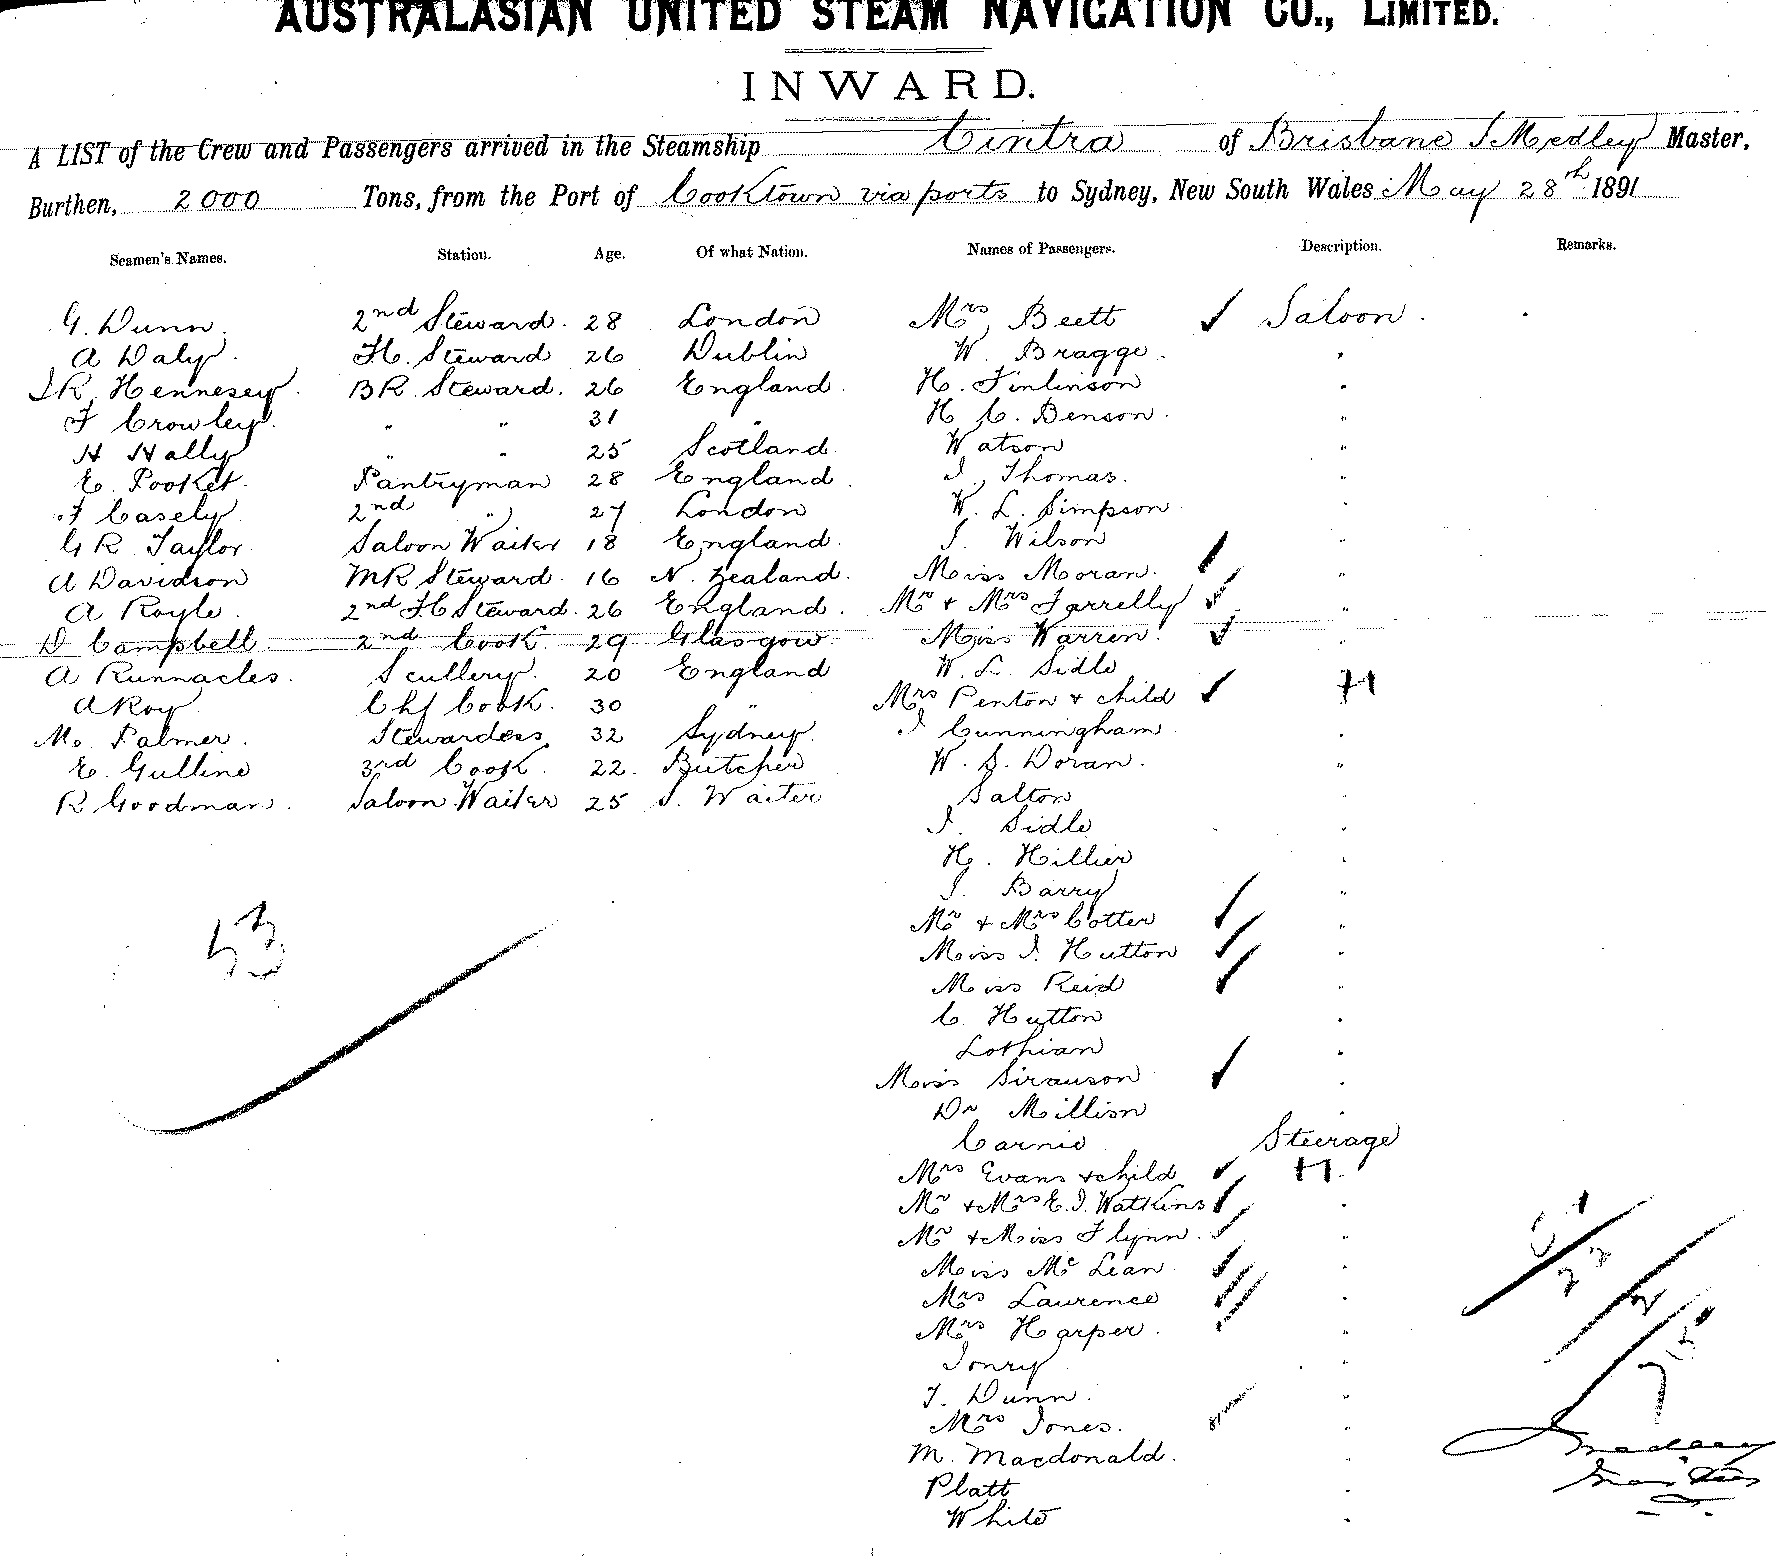 AUSTRALASIAN UNITED STEAM NAVIGATION CO., LIMITED.
INWARD.
A LIST of the Crew and Passengers arrived in the Steamship Cintra of Brisbane J Medley Master,
Burthen, 2000 Tons, from the Port of Cooktown via ports to Sydney, New South Wales May 28th 1891
Seamen's Names. Station. Age. Of what Nation. Names of Passengers. Description. Remarks.
G. Dunn. 2nd Steward. 28 London Mrs Beett ✓ Saloon.
A Daly. F.C. Steward 26 Dublin W. Bragge. "
J R Hennesey. BR. Steward. 26 England. H. Finlinson "
F Crowley. " " 31 " H C. Benson. "
H Hally " " 25 Scotland. Watson "
E. Pooket. Pantryman 28 England. J. Thomas. "
F Casely 2nd " 27 London W. L. Simpson "
G R Taylor. Saloon Waiter 18 England. J. Wilson "
A Davidson MR Steward. 16 N. Zealand. Miss Moran. ✓ "
A Royle. 2nd F.C Steward. 26 England. Mr & Mrs Farrelly ✓ "
D Campbell. 2nd Cook. 29 Glasgow. Miss Warren. ✓ "
A Runnacles. Scullery. 20 England W. L. Sidle
A Roy Chf Cook. 30 " Mrs Penton & child ✓ +1
M. Palmer. Stewardess 32 Sydney. J Cunningham "
E. Gulline 3rd Cook. 22. Butcher W. S. Doran. "
R Goodman. Saloon Waiter 25 S. Waiter Salton "
J. Sidle "
H. Hillier "
J. Barry "
Mr & Mrs Cotter ✓ "
Miss J. Hutton ✓ "
Miss Reid ✓ "
C. Hutton "
Lothian "
Miss Sirauson ✓ "
Dr Millisn "
Carnie Steerage
Mrs Evans & child ✓ +1
Mr & Mrs E. J. Watkins ✓ "
Mr & Miss Flynn. ✓ "
Miss Mc Lean ✓ "
Mrs Laurence ✓ "
Mrs Harper. ✓ "
Jonry "
J. Dunn. "
Mrs Jones. ✓ "
M. Macdonald. "
Platt "
White "
53
J Medley
Master